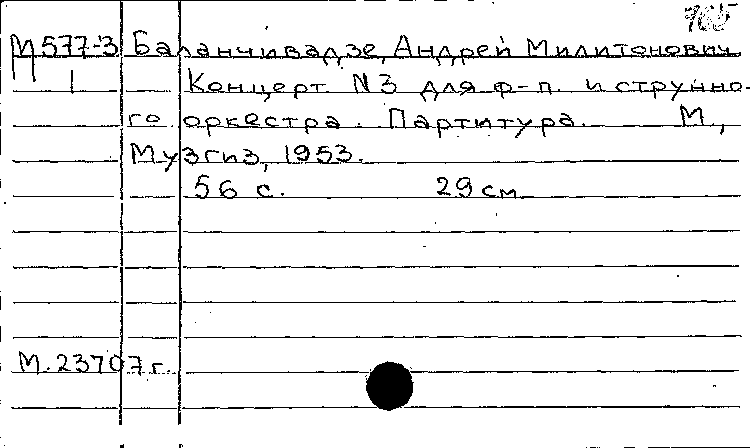 765
М577-3 Баланчивадзе, Андрей Милитонович
1 Концерт N3 для ф-п. и струнно-
го оркестра. Партитура. М.,
Музгиз, 1953.
56 с. 29 см
М.23707г.